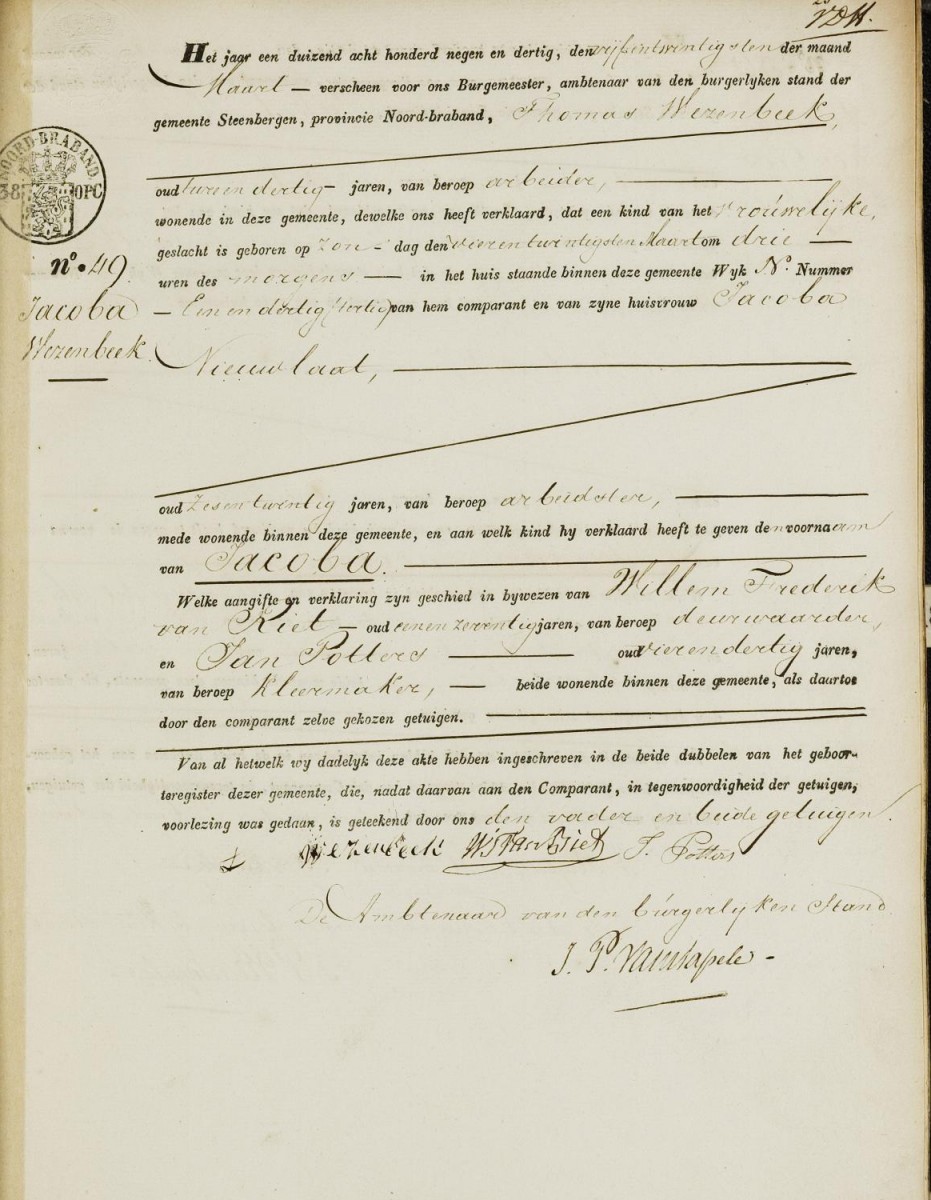 Het jaar een duizend acht honderd negen en dertig, den vijfentwintigsten der maand
Maart — verscheen voor ons Burgemeester, ambtenaar van den burgerlyken stand der
gemeente Steenbergen, provincie Noord-braband, Thomas Wezenbeek,
NOORD-BRABAND
OPC
oud twee en dertig — jaren, van beroep arbeider,
wonende in deze gemeente, dewelke ons heeft verklaard, dat een kind van het vrouwelyke,
geslacht is geboren op zon - dag den vierentwintigsten Maart om drie —
uren des morgens — in het huis staande binnen deze gemeente Wyk No. Nummer
no. 49
Jacoba
Wezenbeek.
— Een en dertig van hem comparant en van zyne huisvrouw Jacoba
Nieuwlaat,
oud zesentwintig jaren, van beroep arbeidster,
mede wonende binnen deze gemeente, en aan welk kind hy verklaard heeft te geven den voornaam
van Jacoba.
Welke aangifte en verklaring zyn geschied in bywezen van Willem Frederik
van Riet — oud eenen zeventig jaren, van beroep deurwaarder,
en Jan Potters — oud vierendertig jaren,
van beroep kleermaker, — beide wonende binnen deze gemeente, als daartoe
door den comparant zelve gekozen getuigen.
Van al hetwelk wy dadelyk deze akte hebben ingeschreven in de beide dubbelen van het geboor-
teregister dezer gemeente, die, nadat daarvan aan den Comparant, in tegenwoordigheid der getuigen,
voorlezing was gedaan, is geteekend door ons den vader en beide getuigen.
Wezenbeek W F Van Riet J. Potters
De Ambtenaar van den burgerlyken Stand